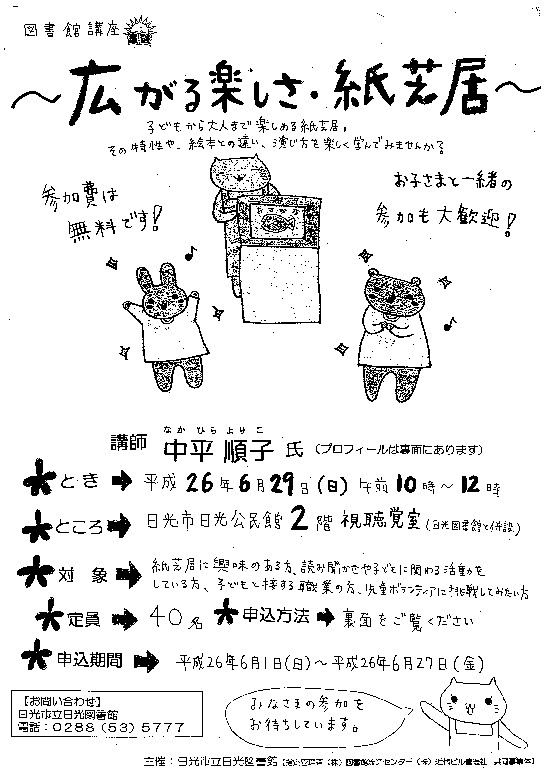 図書館講座
～広がる楽しさ・紙芝居～
子どもから大人まで楽しめる紙芝居。
その特性や、絵本との違い、演じ方を楽しく学んでみませんか？
参加費は
無料です！
お子さまと一緒の
参加も大歓迎！
なか ひら よりこ
講師 中平 順子 氏 (プロフィールは裏面にあります)
とき ➡ 平成26年6月29日(日) 午前10時～12時
ところ ➡ 日光市日光公民館2階 視聴覚室(日光図書館と併設)
対象 ➡ 紙芝居に興味のある方、読み聞かせや子どもに関わる活動を
している方、子どもと接する職業の方、児童ボランティアに挑戦してみたい方
定員 ➡ 40名 申込方法 ➡ 裏面をご覧ください
申込期間 ➡ 平成26年6月1日(日)～平成26年6月27日(金)
【お問い合わせ】
日光市立日光図書館
電話：0288(53)5777
みなさまの参加を
お待ちしています。
主催：日光市立日光図書館